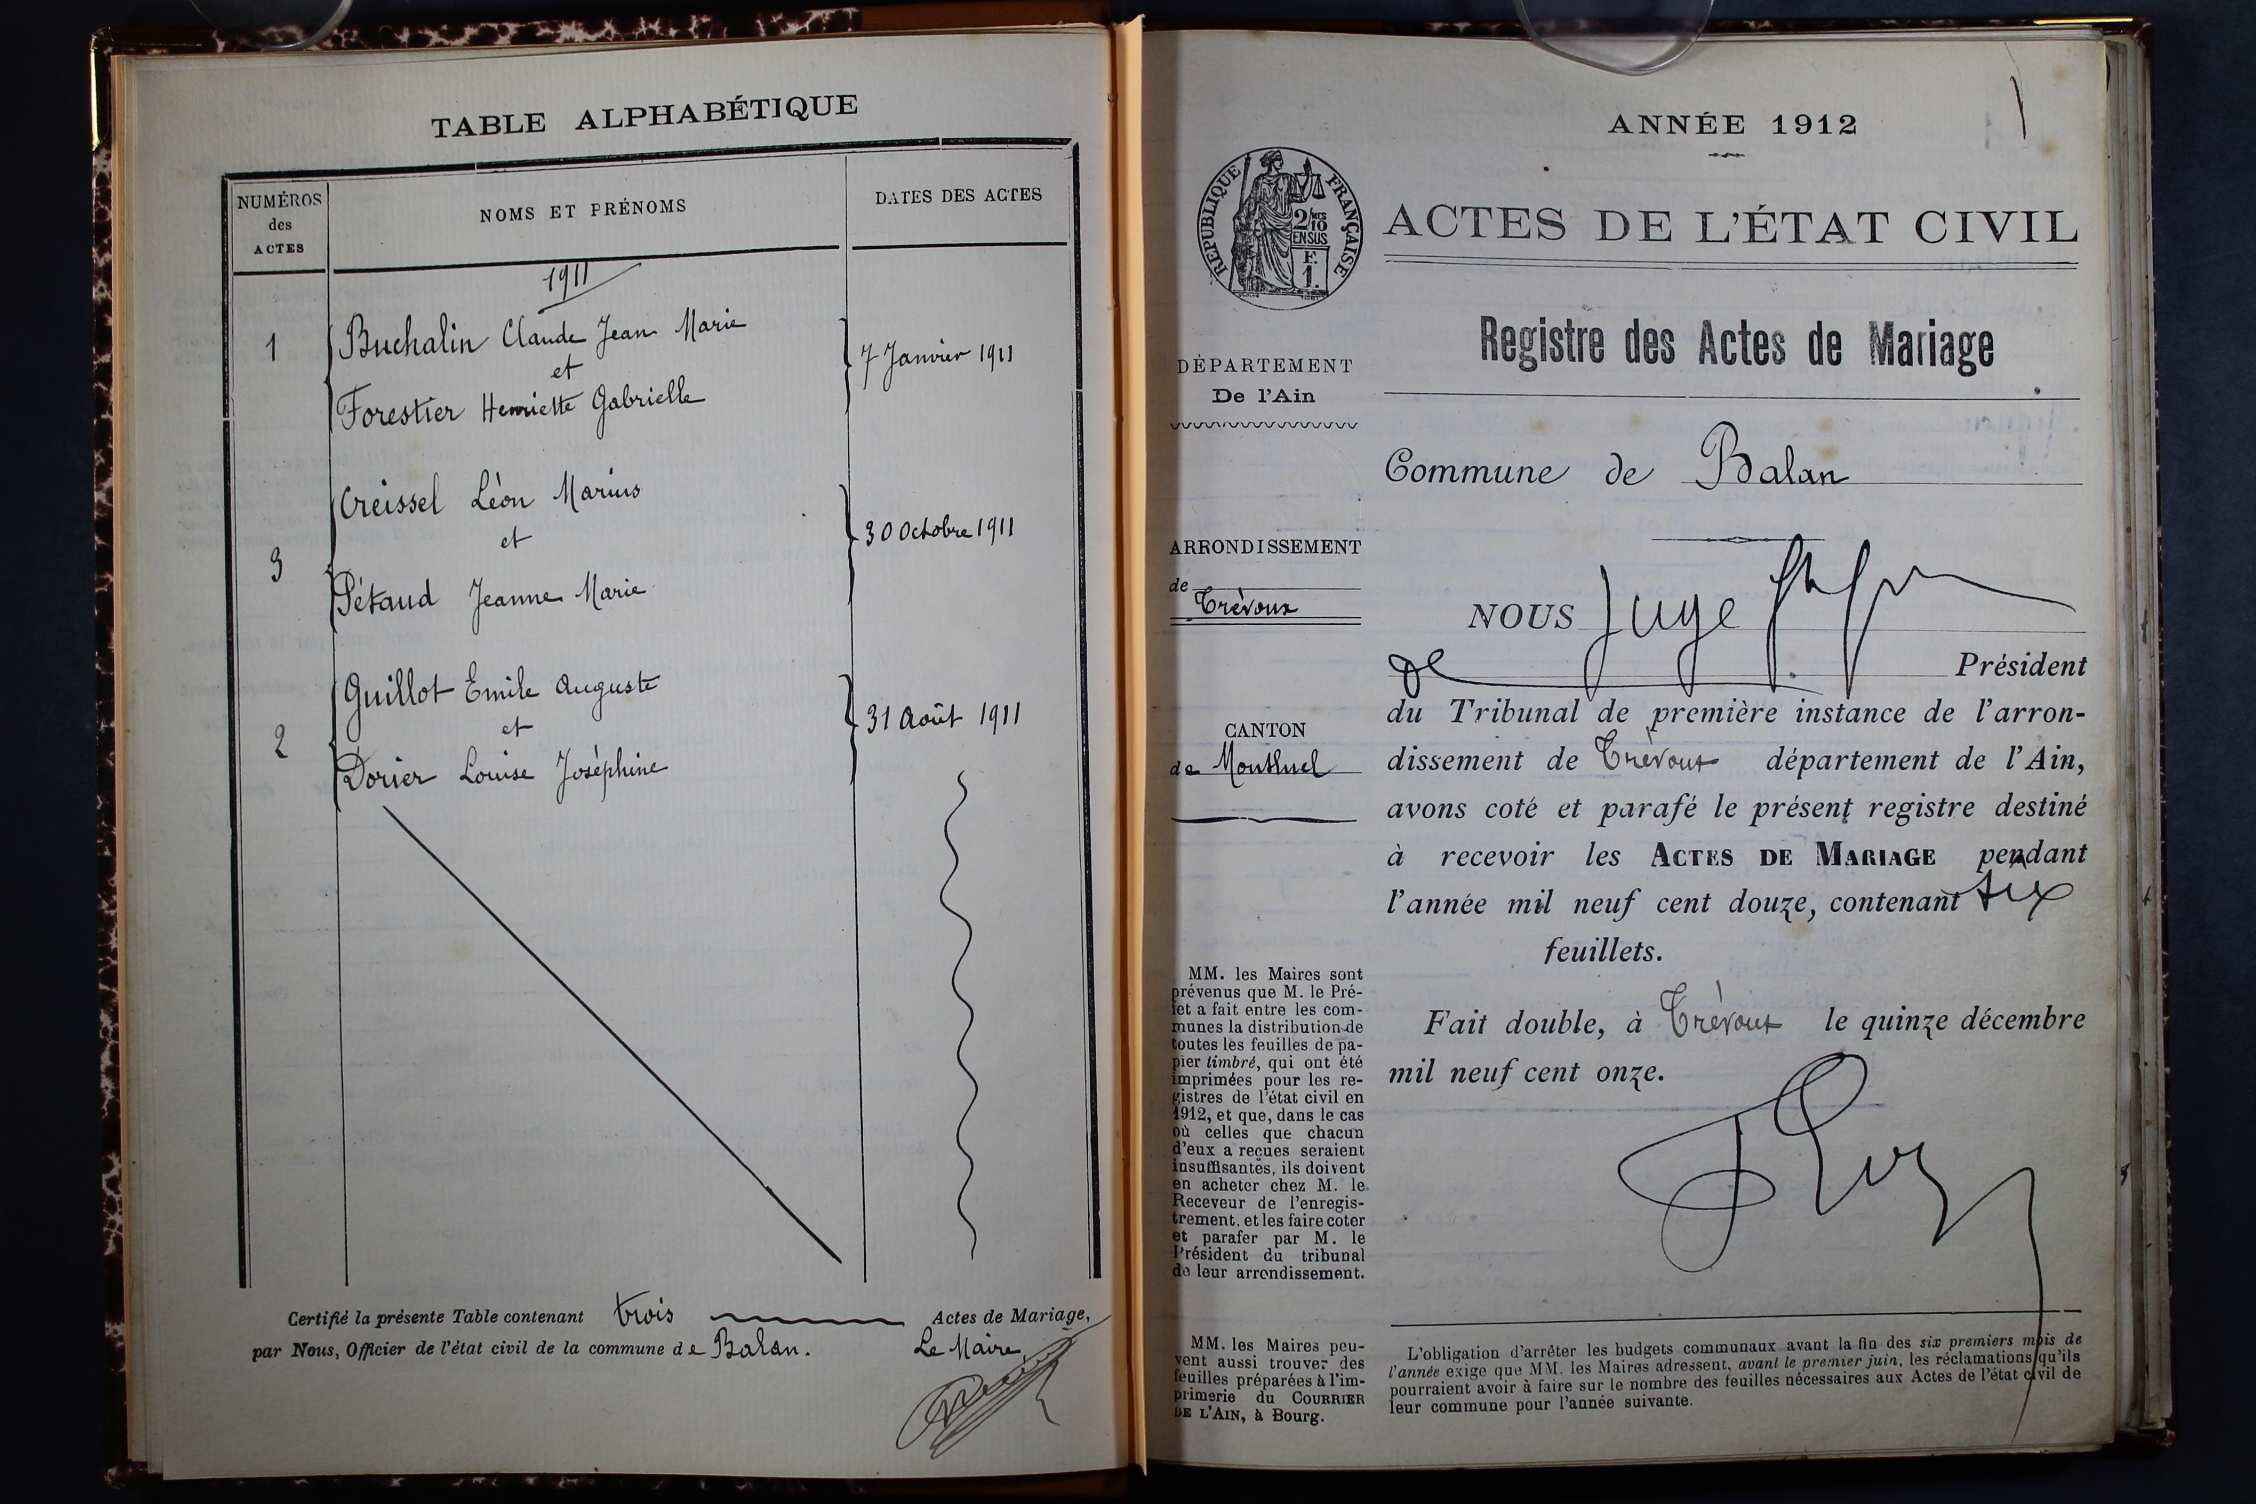 TABLE ALPHABÉTIQUE
NUMÉROS
des
ACTES
NOMS ET PRÉNOMS
DATES DES ACTES
1911
1
Buchalin Claude Jean Marie
et
Forestier Henriette Gabrielle
7 Janvier 1911
3
Creissel Léon Marius
et
Pétaud Jeanne Marie
30 Octobre 1911
2
Guillot Emile Auguste
et
Dorier Louise Joséphine
31 Août 1911
Certifié la présente Table contenant trois Actes de Mariage,
par Nous, Officier de l'état civil de la commune de Balan.
Le Maire,
ANNÉE 1912
RÉPUBLIQUE FRANÇAISE
2/10
EN SUS
F.
1.
ACTES DE L'ÉTAT CIVIL
Registre des Actes de Mariage
DÉPARTEMENT
De l'Ain
Commune de Balan
ARRONDISSEMENT
de
Trévoux
CANTON
de Montluel
NOUS Juge
de Président
du Tribunal de première instance de l'arron-
dissement de Trévoux département de l'Ain,
avons coté et parafé le présent registre destiné
à recevoir les ACTES DE MARIAGE pendant
l'année mil neuf cent douze, contenant six
feuillets.
Fait double, à Trévoux le quinze décembre
mil neuf cent onze.
MM. les Maires sont
prévenus que M. le Pré-
fet a fait entre les com-
munes la distribution de
toutes les feuilles de pa-
pier timbré, qui ont été
imprimées pour les re-
gistres de l'état civil en
1912, et que, dans le cas
où celles que chacun
d'eux a reçues seraient
insuffisantes, ils doivent
en acheter chez M. le
Receveur de l'enregis-
trement, et les faire coter
et parafer par M. le
Président du tribunal
de leur arrondissement.
MM. les Maires peu-
vent aussi trouver des
feuilles préparées à l'im-
primerie du COURRIER
DE L'AIN, à Bourg.
L'obligation d'arrêter les budgets communaux avant la fin des six premiers mois de
l'année exige que MM. les Maires adressent, avant le premier juin, les réclamations qu'ils
pourraient avoir à faire sur le nombre des feuilles nécessaires aux Actes de l'état civil de
leur commune pour l'année suivante.